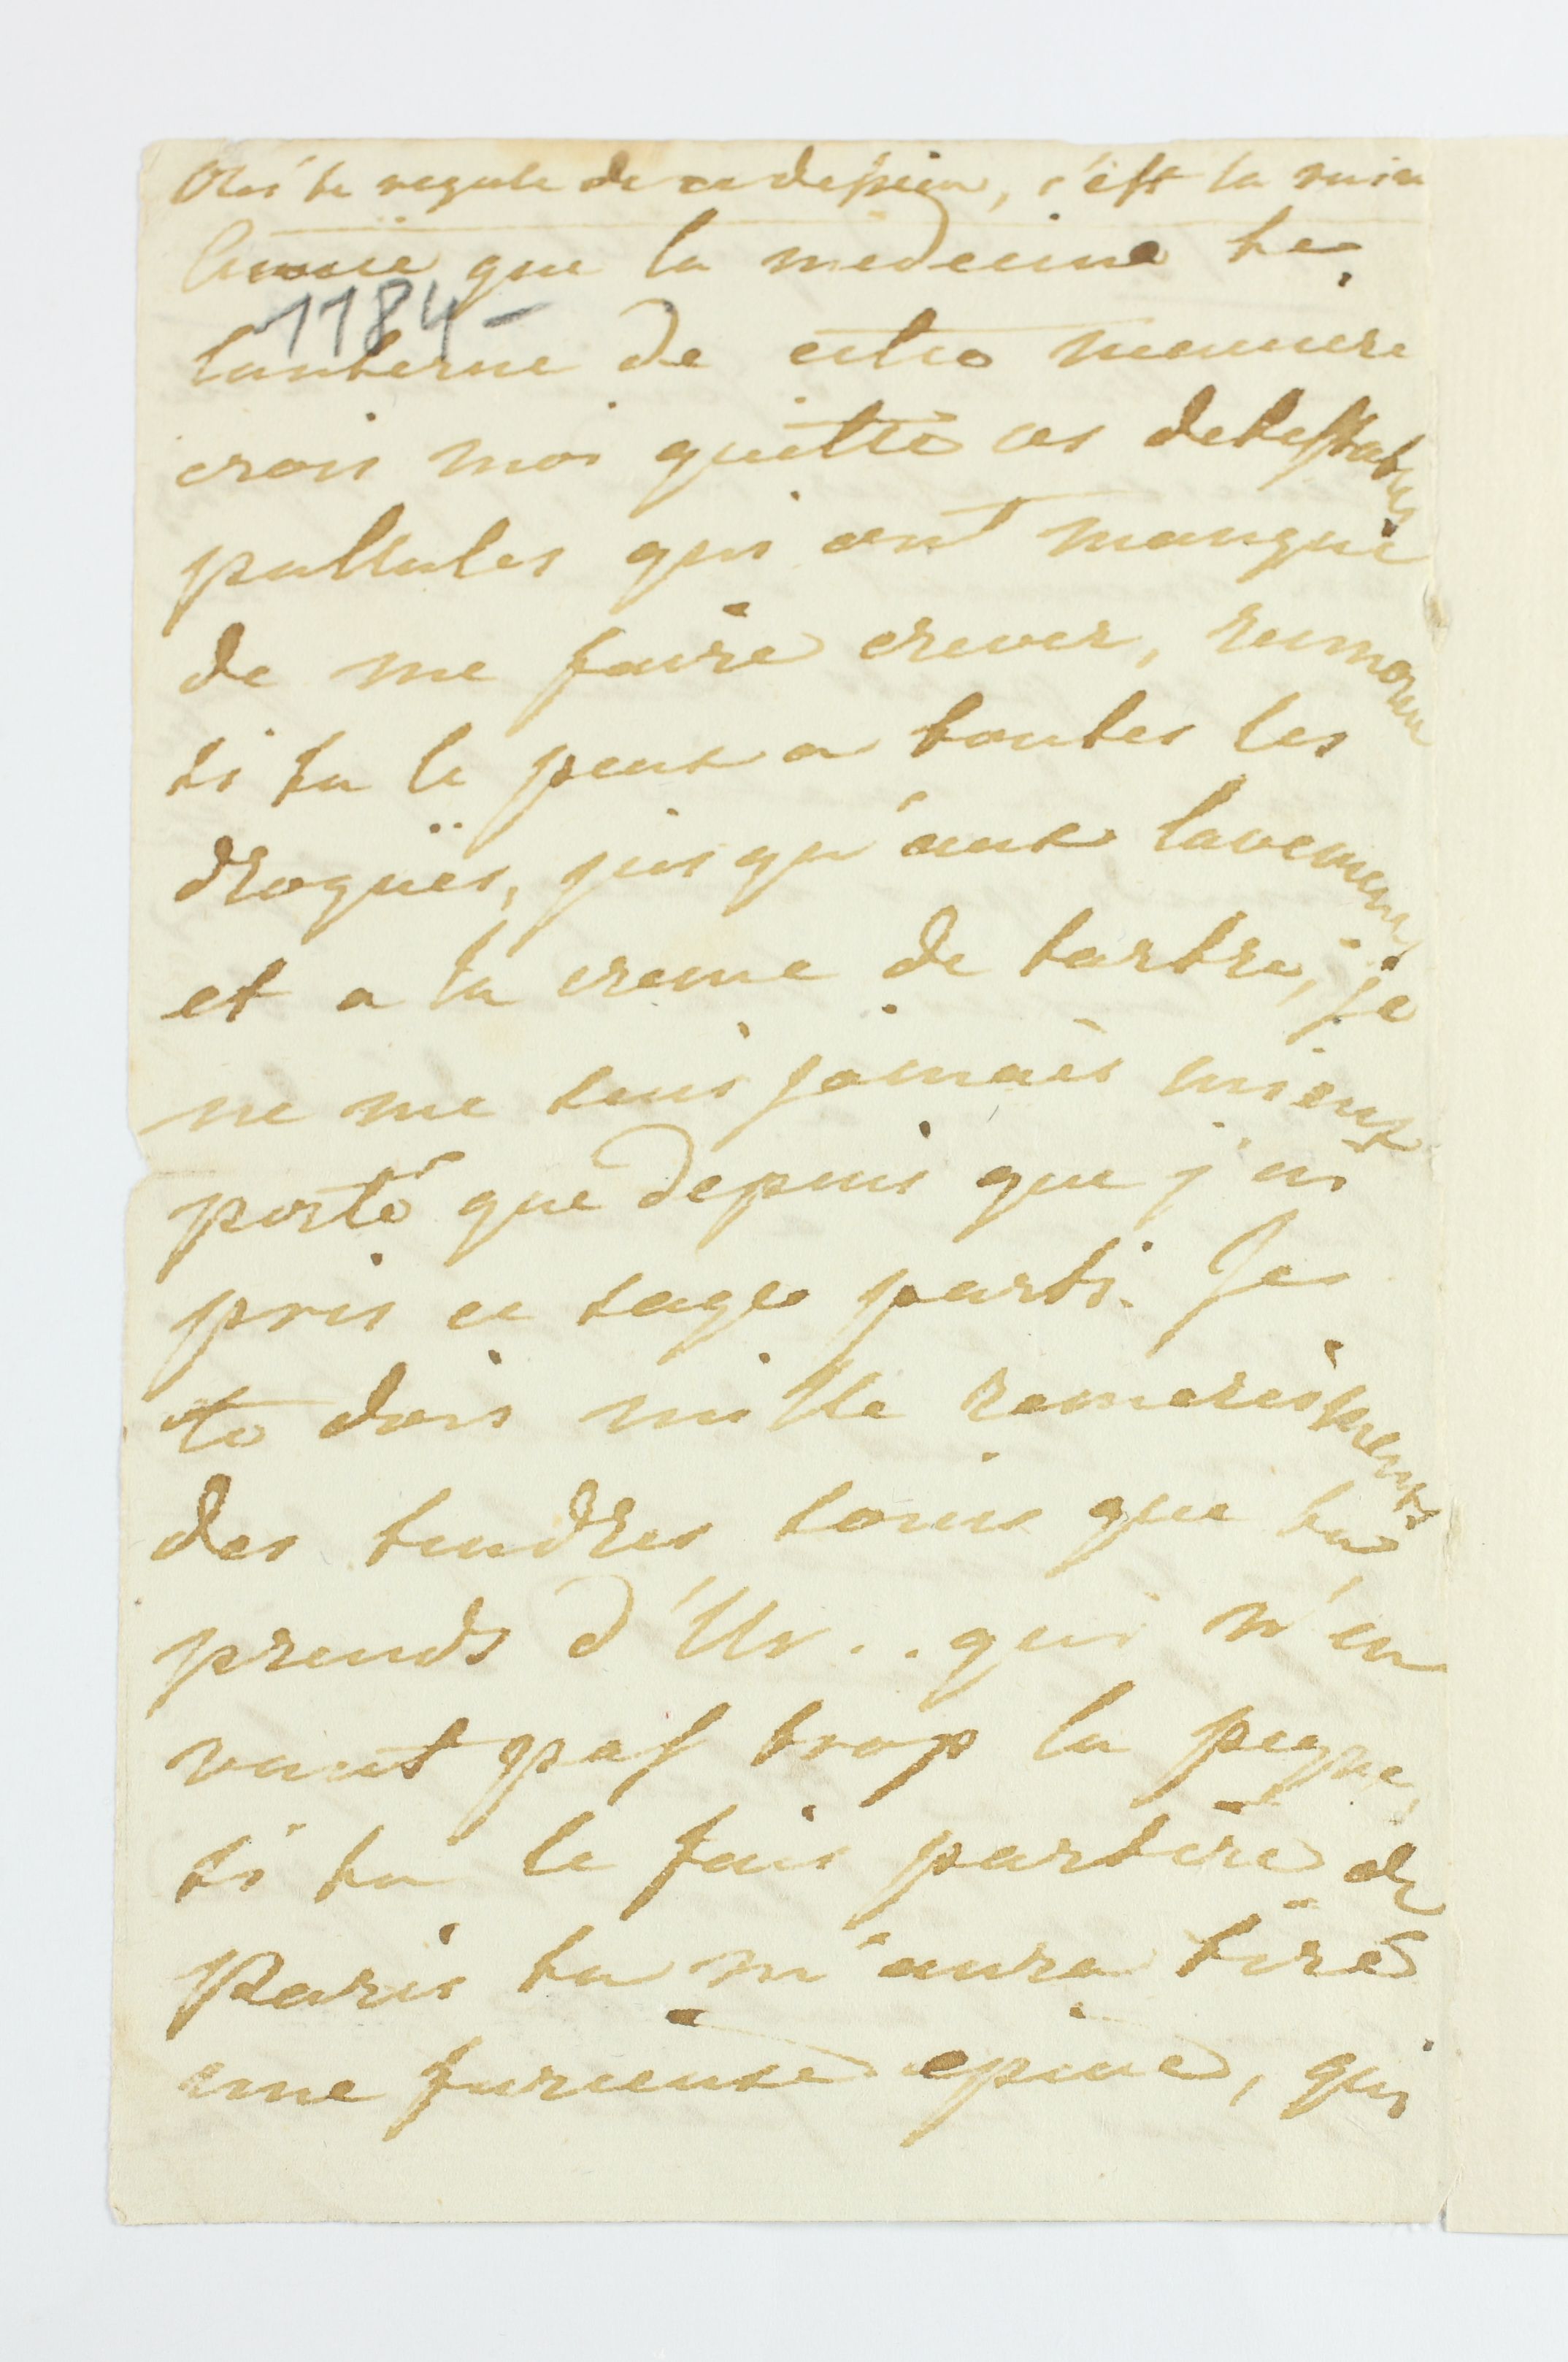 de ce dessein, c'est la
que la medecine te
1184-
lanterne de cette maniere
crois moi quitte ces detestables
pullules qui ont manqué
de me faire crever, renonce
si tu le peux a toutes les
drogües, jusqu'aux lavemens
et a la creme de tartre, je
ne me suis jamais mieux
porté que depuis que j'ai
pris ce sage parti. Je
te dois mille remercimens
des tendres soins que tu
prends d'Ur.. qui n'en
vaut pas trop la pepne,
si tu le fais partire de
Paris tu m'aura tiré
une furieuse epine, qui